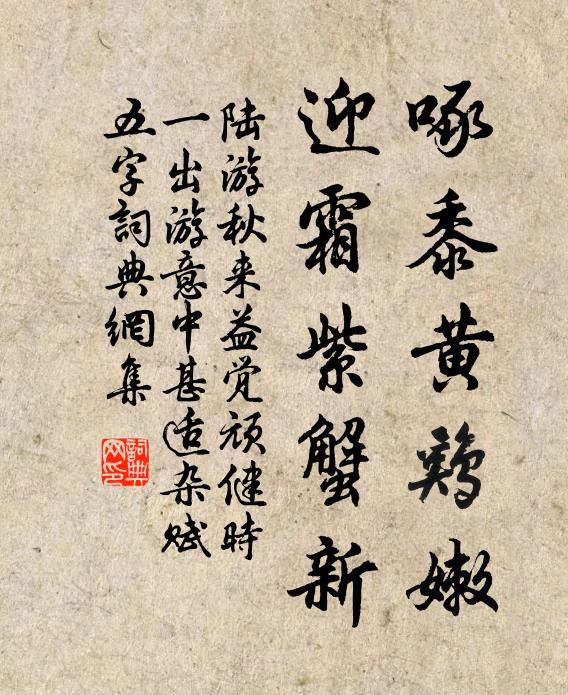 啄黍黄鸡嫩
迎霜紫蟹新
陆游秋来益觉顽健时
一出游意中甚适杂赋
五字詞典網集
詞典
网印